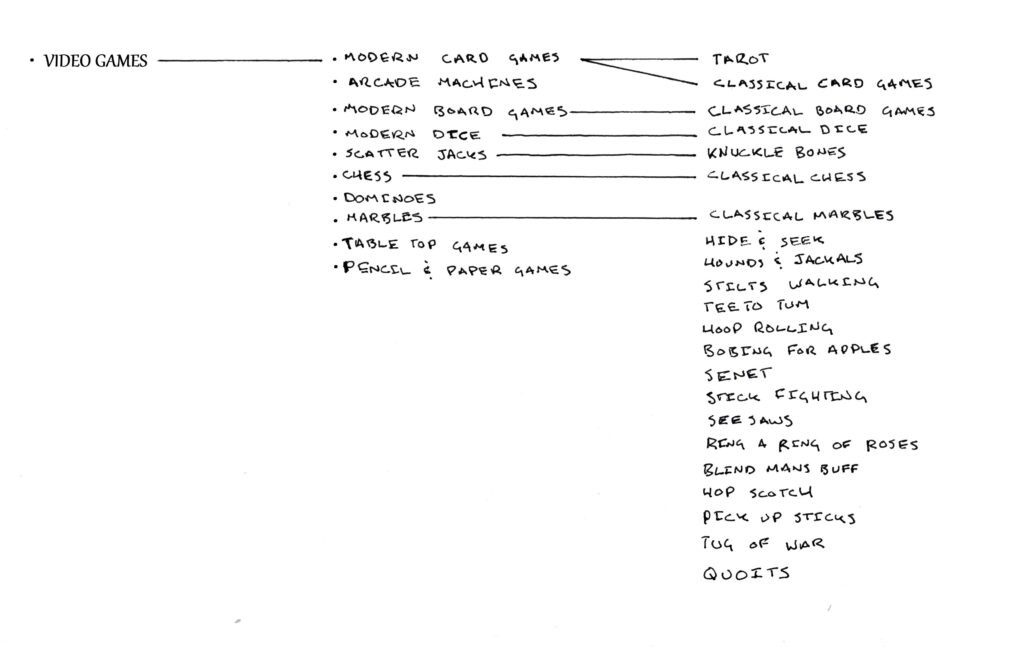 · VIDEO GAMES
· MODERN CARD GAMES
· ARCADE MACHINES
· MODERN BOARD GAMES
· MODERN DICE
· SCATTER JACKS
· CHESS
· DOMINOES
· MARBLES
· TABLE TOP GAMES
· PENCIL & PAPER GAMES
TAROT
CLASSICAL CARD GAMES
CLASSICAL BOARD GAMES
CLASSICAL DICE
KNUCKLE BONES
CLASSICAL CHESS
CLASSICAL MARBLES
HIDE & SEEK
HOUNDS & JACKALS
STILTS WALKING
TEETO TUM
HOOP ROLLING
BOBING FOR APPLES
SENET
STICK FIGHTING
SEESAWS
RING A RING OF ROSES
BLIND MANS BUFF
HOP SCOTCH
PICK UP STICKS
TUG OF WAR
QUOITS